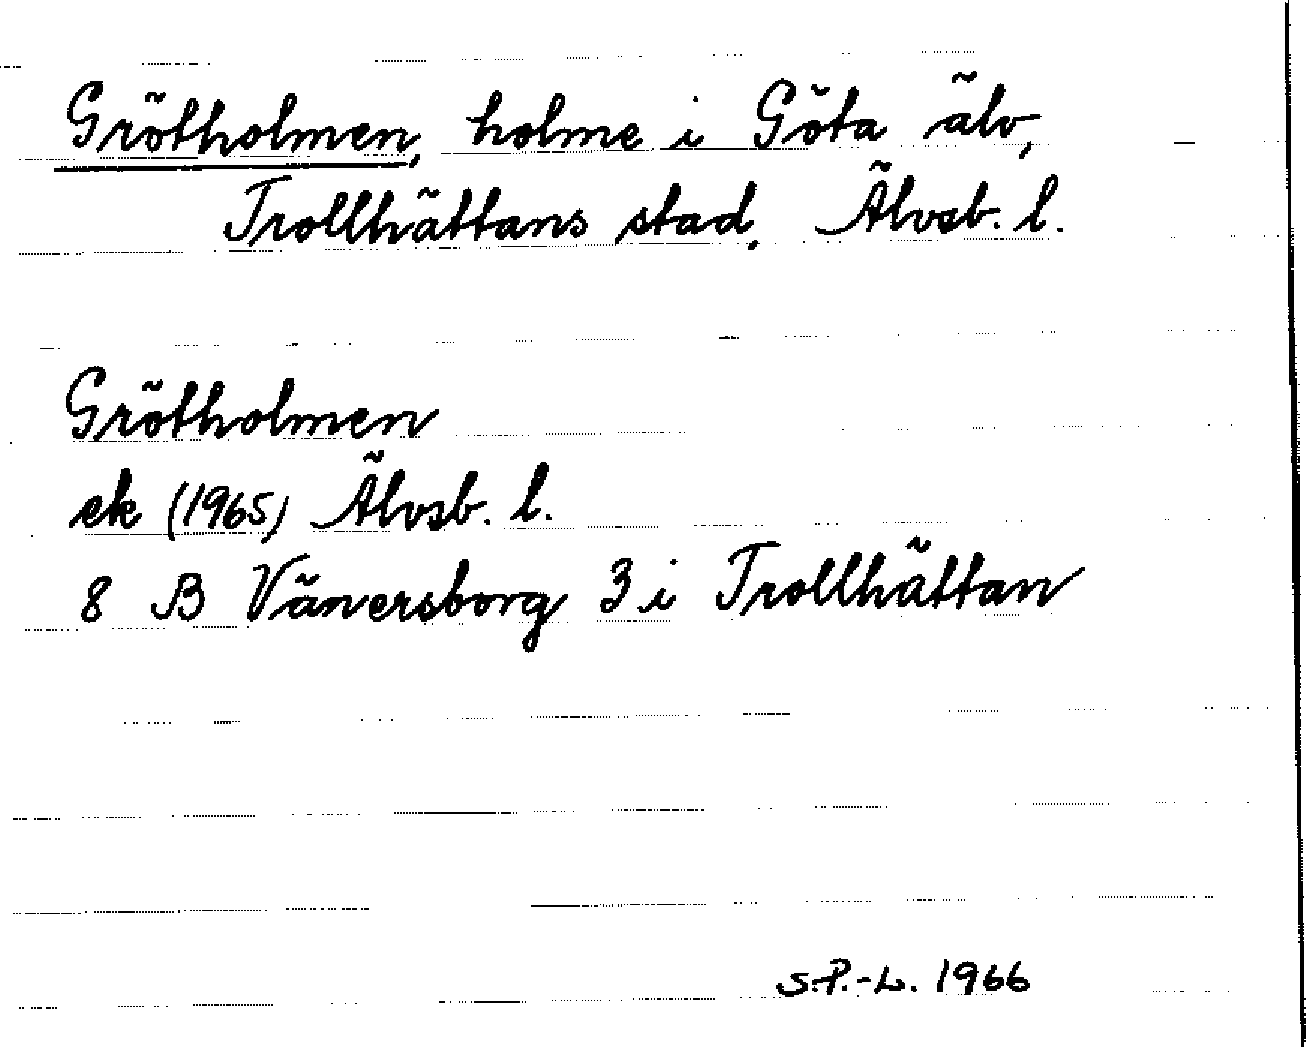 Grötholmen, holme i Göta älv,
Trollhättans stad, Älvsb. l.
Grötholmen
ek (1965) Älvsb. l.
8 B Vänersborg 3 i Trollhättan
S.P.-L. 1966